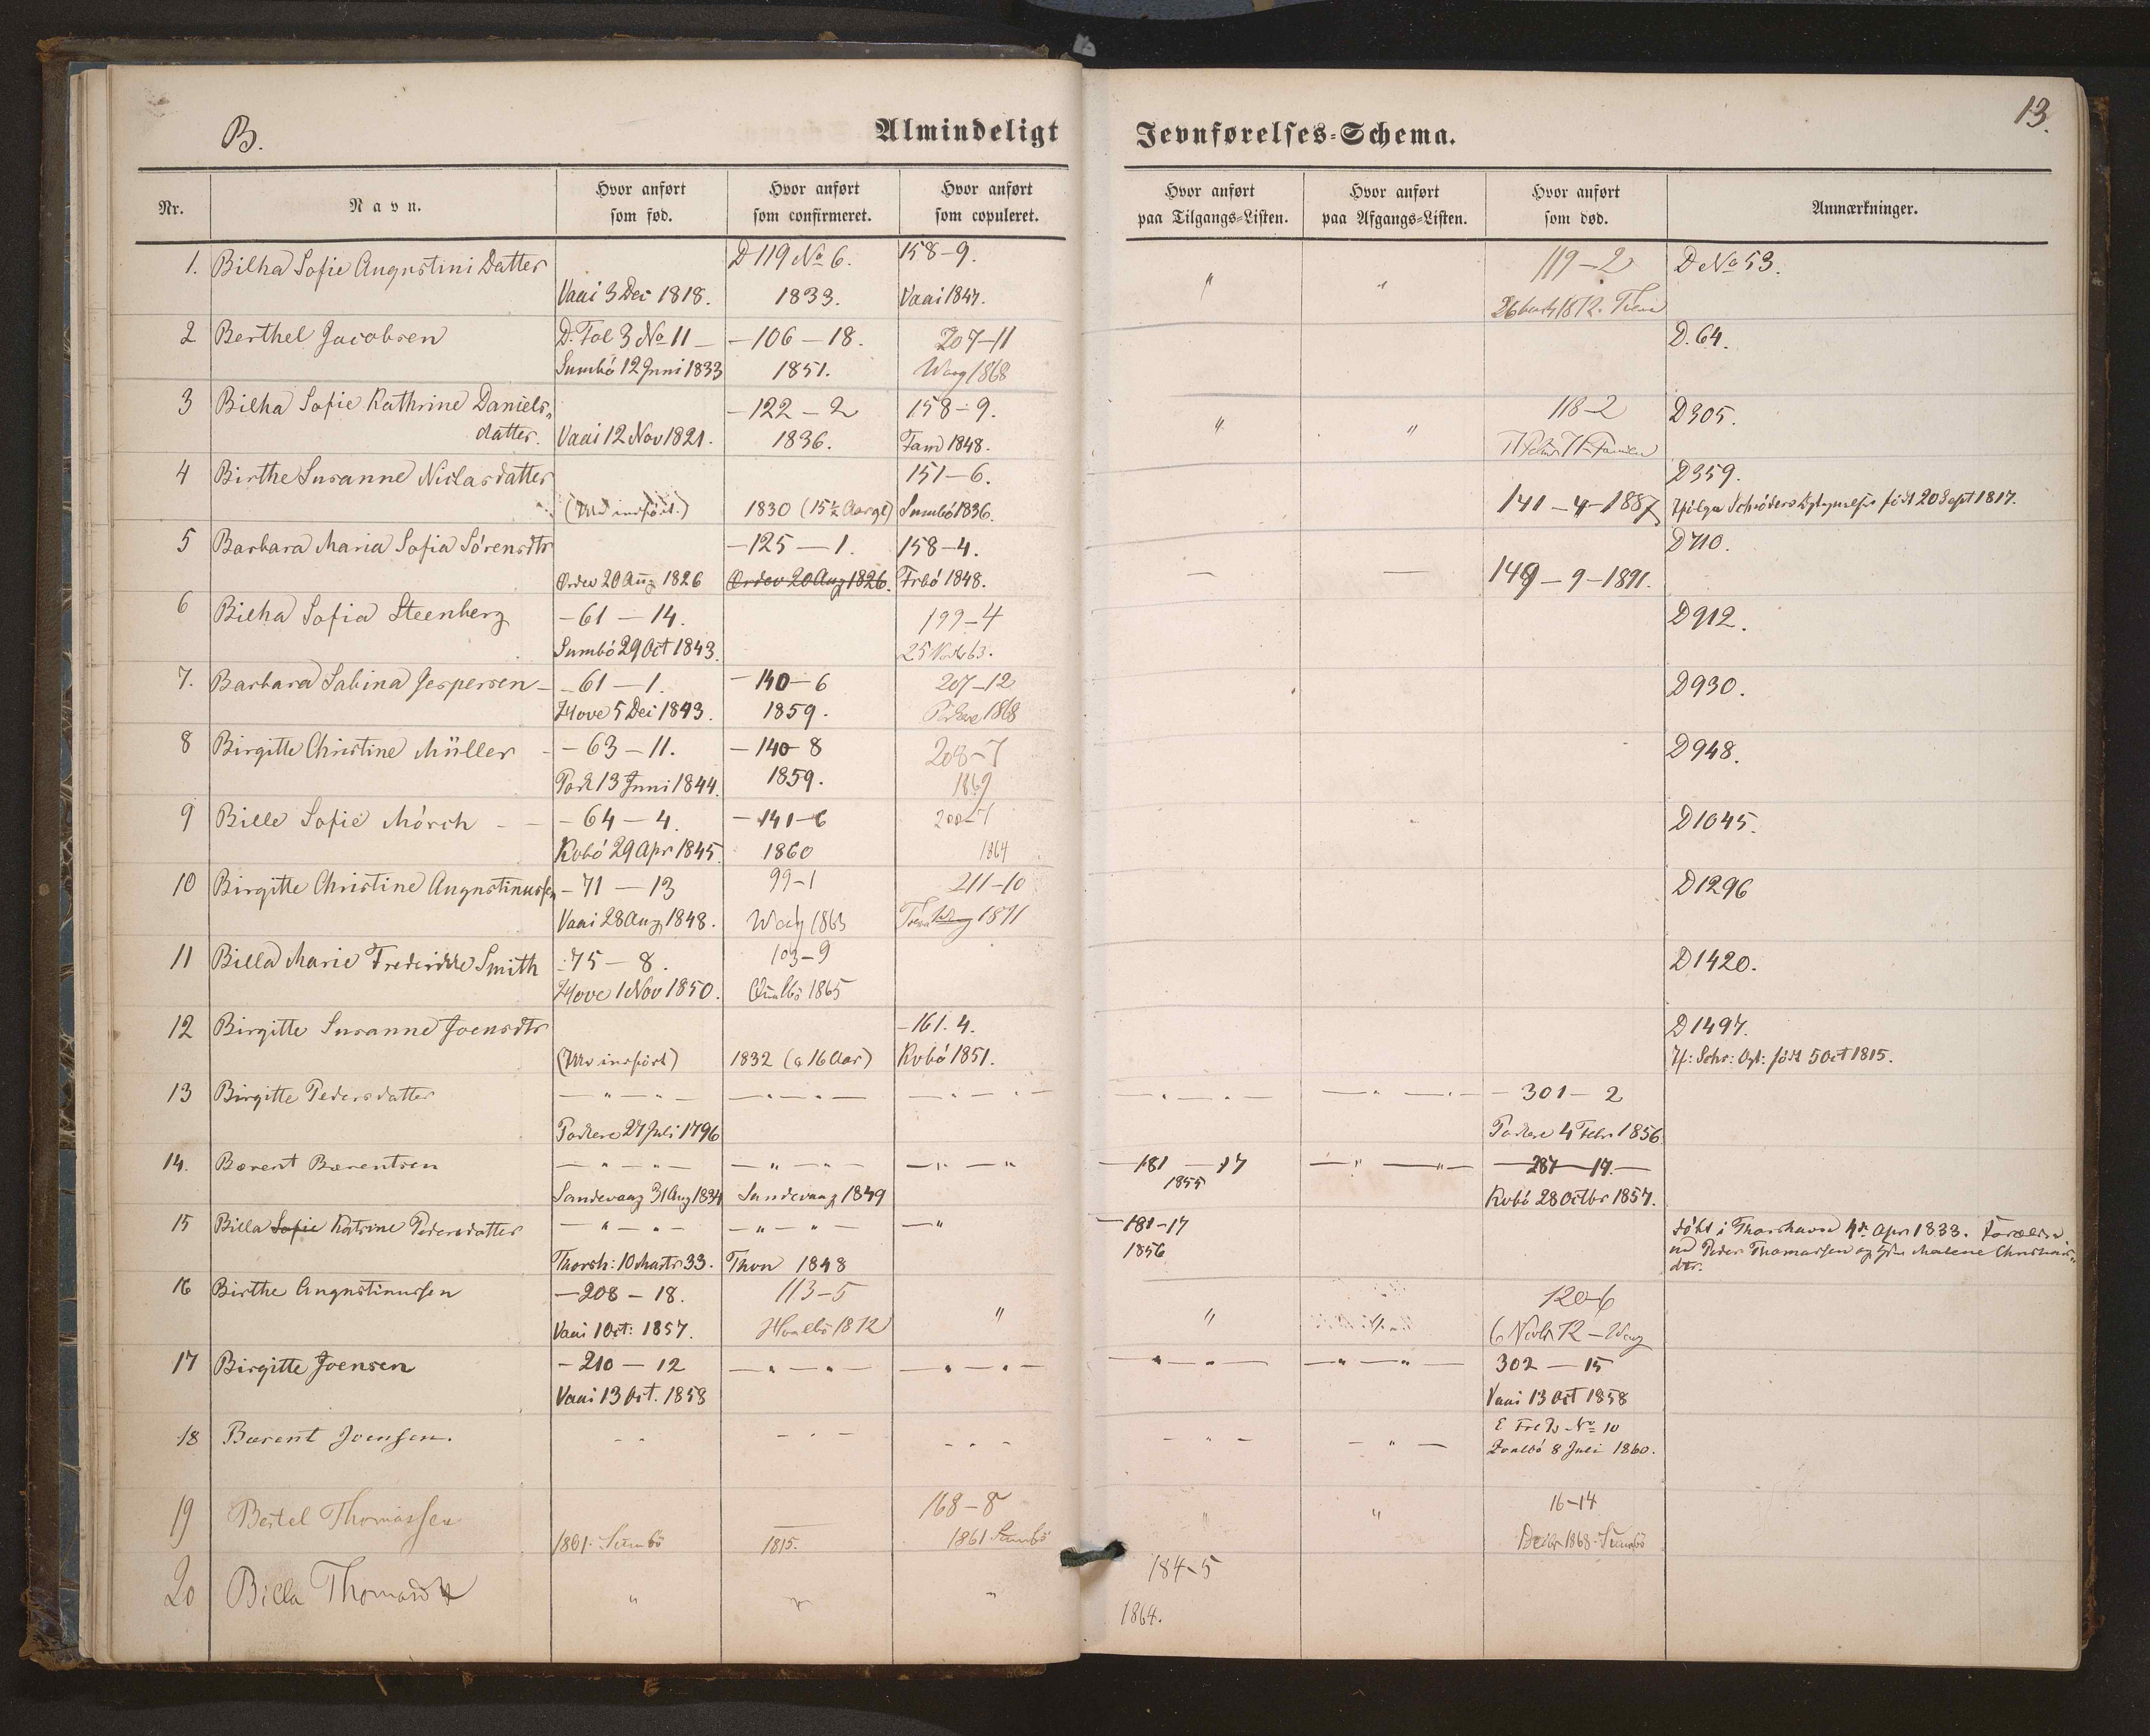 B.
Almindeligt Jevnførelses-Schema.
13.
Nr. Navn. Hvor anført som fød. Hvor anført som confirmeret. Hvor anført som copuleret. Hvor anført paa Tilgangs-Listen. Hvor anført paa Afgangs-Listen. Hvor anført som død. Anmærkninger.
1. Bilha Sofie Augustini Datter D 119 No 6. 158-9. " " 119-2 D No 53.
Vaai 3 Dec 1818. 1833. Vaai 1847. 1872.
2 Berthel Jacobsen D. Fol 3 No 11 - -106-18. 207-11 D. 64.
Sumbö 12 Juni 1833 1851. Waag 1868
3 Bilha Sofie Kathrine Daniels- -122-2 158-9. " " 118-2 D305.
datter. Vaai 12 Nov 1821. 1836. Famö 1848.
4 Birthe Susanne Niclasdatter 151-6. D359.
(Uls indført.) 1830 (15½ Aargl) Sumbö 1836. 141-4-1887 ifölge Schröders født 20 Sept 1817.
5 Barbara Maria Sofia Sörensdtr -125-1. 158-4. D710.
Ordev 20 Aug 1826 Ordev 20 Aug 1826. Frbö 1848. — — 149-9-1891.
6 Bilha Sofia Steenberg -61-14. 199-4 D912.
Sumbö 29 Oct 1843. 25 Novb 63.
7. Barbara Sabina Jespersen -61-1. -140-6 207-12 D930.
Hove 5 Dec 1843. 1859. Porkere 1868
8 Birgitte Christine Müller -63-11. -140-8 208-7 D948.
Pork 13 Juni 1844. 1859. 1869
9 Bille Sofie Mörch -64-4. -141-6 200-7 D1045.
Kvbö 29 Apr 1845. 1860 1864
10 Birgitte Christine Augustinussen -71-13 99-1 211-10 D1296
Vaai 28 Aug 1848. Waag 1863 1871
11 Billa Marie Frederikke Smith -75-8. 103-9 D1420.
Hove 1 Nov 1850. Qualbö 1865
12 Birgitte Susanne Joensdtr -161.4. D1497.
(Uls indført) 1832 (a 16 Aar) Kvbö 1851. If: Schr: Opt: født 5 Oct 1815.
13 Birgitte Pedersdatter —"—"— —"—"— —"—"— —"—"— —"—"— -301-2
Porkere 27 Juli 1796 Porkere 4 Febr 1856
14. Barent Barentsen —"—"— —"—"— —"—" —181—17 —"—"— —287—17.—
Sandevaag 31 Aug 1834 Sandevaag 1849 1855 Kvbö 28 Octbr 1857.
15 Billa Sofie Katrine Pedersdatter —"—"— —"—"— —" —181-17 født i Thorshavn 4de Apr 1833. Forældre
Thorsh: 10 Martr 33. Thvn 1848 1856 Peder Thomassen og Malene Christians-
dtr.
16 Birthe Augustinussen -208-18. 113-5 " " " 120-6
Vaai 1 Oct: 1857. Hvalbö 1872 6 Novbr 72 - Waag
17 Birgitte Joensen -210-12 —"—"— —"—"— —"—"— —"—"— 302-15
Vaai 13 Oct. 1858 Vaai 13 Oct 1858
18 Barent Joensen. - - - - - - - - - " - — " — No 10
8 Juli 1860.
19 Bertel Thomassen 168-8 " " 16-14
1801. Sumbö 1815. 1861 Sumbö Decbr 1868. Sumbö
20 Billa Thomasdtr " " " 184-5
1864.